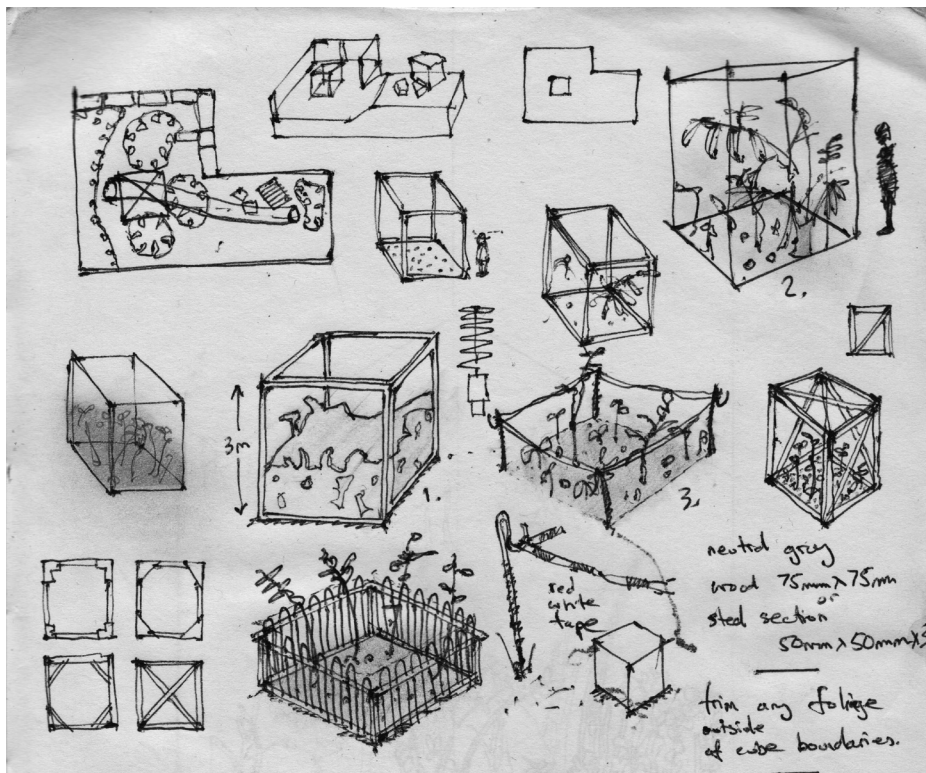 2.
3m
1.
3.
red
white
tape
neutral gray
wood 75mm x 75mm
or
steel section
50mm x 50mm x
trim any foliage
outside
of cube boundaries.